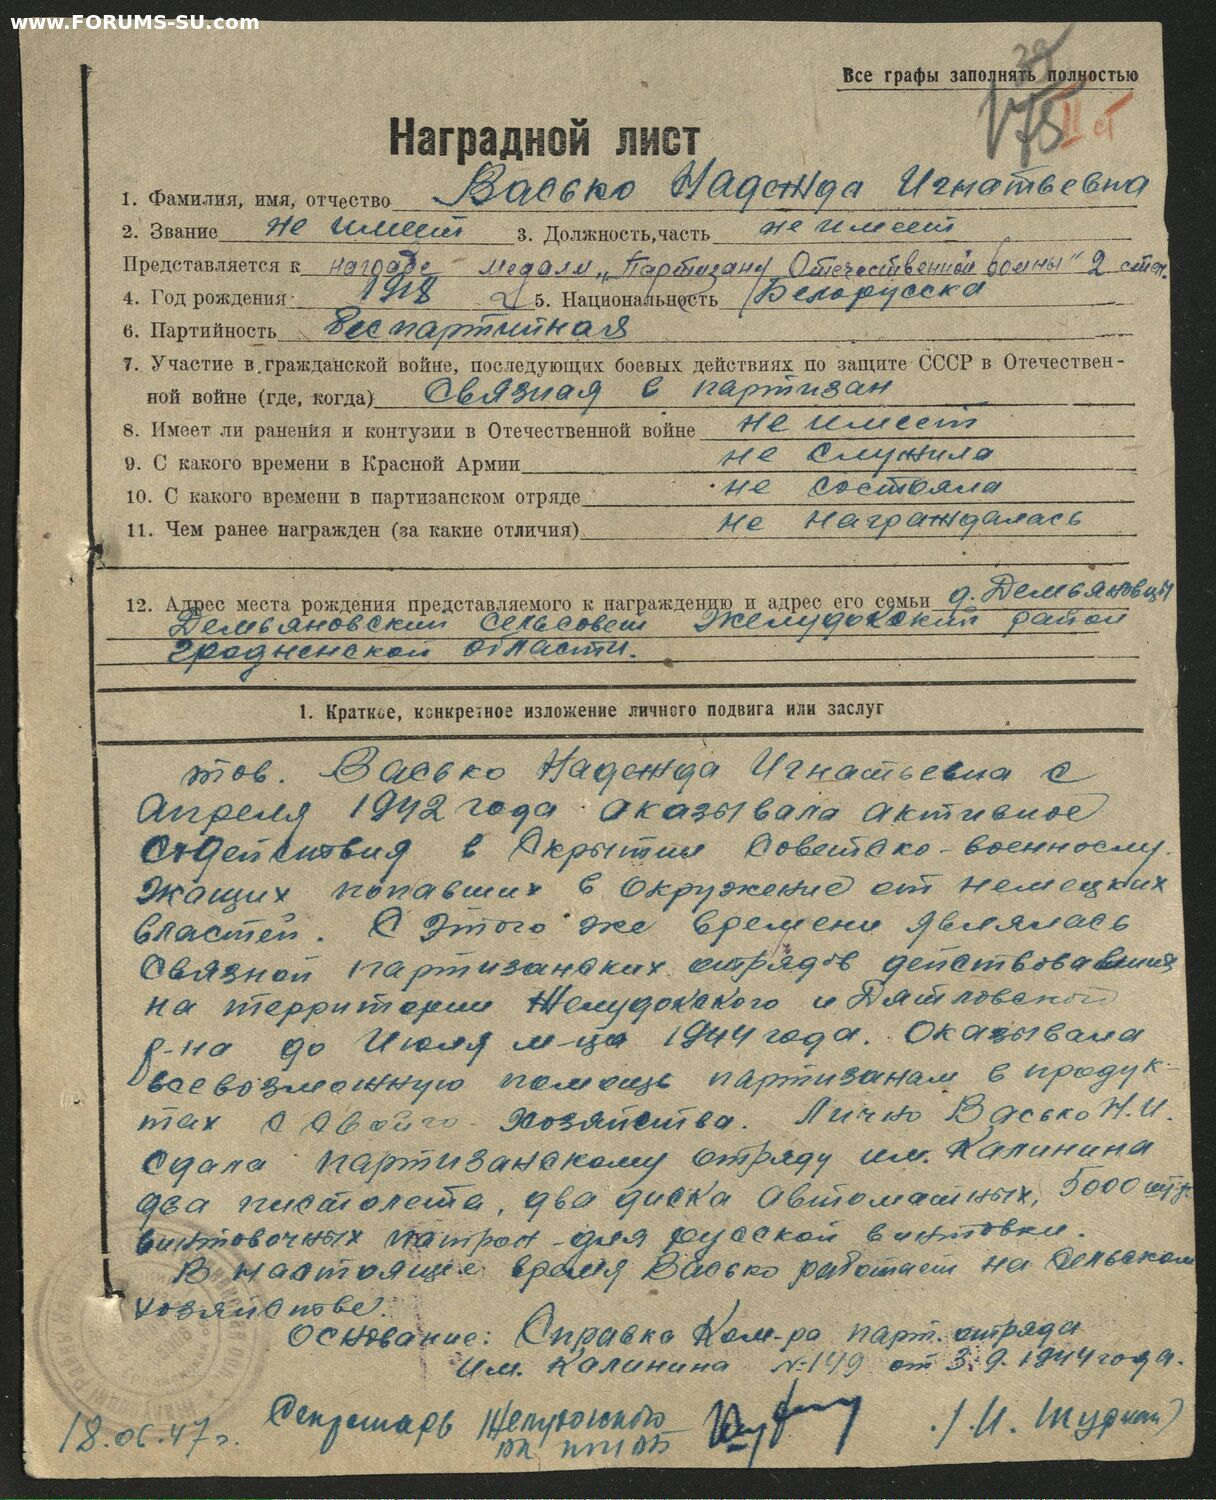 www.FORUMS-SU.com
39
Все графы заполнять полностью
178 II ст
Наградной лист
1. Фамилия, имя, отчество Васько Надежда Игнатьевна
2. Звание не имеет 3. Должность, часть не имеет
Представляется к награде - медали „Партизану Отечественной войны" 2 степ.
4. Год рождения 1918 5. Национальность Белорусска
6. Партийность Беспартийная
7. Участие в гражданской войне, последующих боевых действиях по защите СССР в Отечествен-
ной войне (где, когда) Связная в партизан
8. Имеет ли ранения и контузии в Отечественной войне не имеет
9. С какого времени в Красной Армии не служила
10. С какого времени в партизанском отряде не состояла
11. Чем ранее награжден (за какие отличия) не награждалась
12. Адрес места рождения представляемого к награждению и адрес его семьи д. Демьяновцы
Демьяновский сельсовет Желудокский район
Гродненской области.
1. Краткое, конкретное изложение личного подвига или заслуг
тов. Васько Надежда Игнатьевна с
Апреля 1942 года оказывала активное
содействия в скрытии Советско-военнослу-
жащих попавших в окружение от немецких
властей. С этого же времени являлась
связной партизанских отрядов действовавших
на территории Желудокского и Дятловского
р-на до Июля м-ца 1944 года. Оказывала
всевозможную помощь партизанам в продук-
тах с своего хозяйства. Лично Васько Н.И.
сдала партизанскому отряду им. Калинина
два пистолета, два диска автоматных, 5000 штук
винтовочных патрон для русской винтовки.
В настоящие время Васько работает на сельском
хозяйстве.
Основание: Справка Ком-ра парт. отряда
им. Калинина №149 от 3.9.1944 года.
18.06.47г. Секретарь Желудокского
РК КП(б)Б